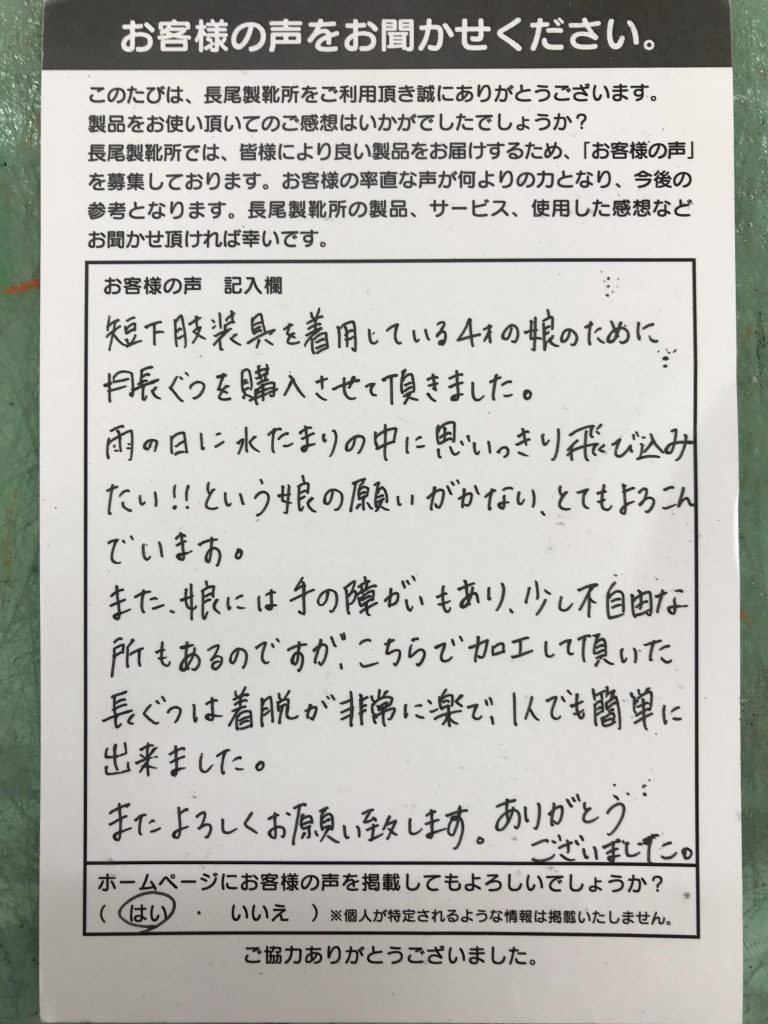 お客様の声をお聞かせください。
このたびは、長尾製靴所をご利用頂き誠にありがとうございます。
製品をお使い頂いてのご感想はいかがでしたでしょうか？
長尾製靴所では、皆様により良い製品をお届けするため、「お客様の声」
を募集しております。お客様の率直な声が何よりの力となり、今後の
参考となります。長尾製靴所の製品、サービス、使用した感想など
お聞かせ頂ければ幸いです。
お客様の声　記入欄
短下肢装具を着用している4才の娘のために
長ぐつを購入させて頂きました。
雨の日に水たまりの中に思いっきり飛び込み
たい!!という娘の願いがかない、とてもよろこん
でいます。
また、娘には手の障がいもあり、少し不自由な
所もあるのですが、こちらで加工して頂いた
長ぐつは着脱が非常に楽で、1人でも簡単に
出来ました。
またよろしくお願い致します。ありがとう
ございました。
ホームページにお客様の声を掲載してもよろしいでしょうか？
（ はい ・ いいえ ）※個人が特定されるような情報は掲載いたしません。
ご協力ありがとうございました。